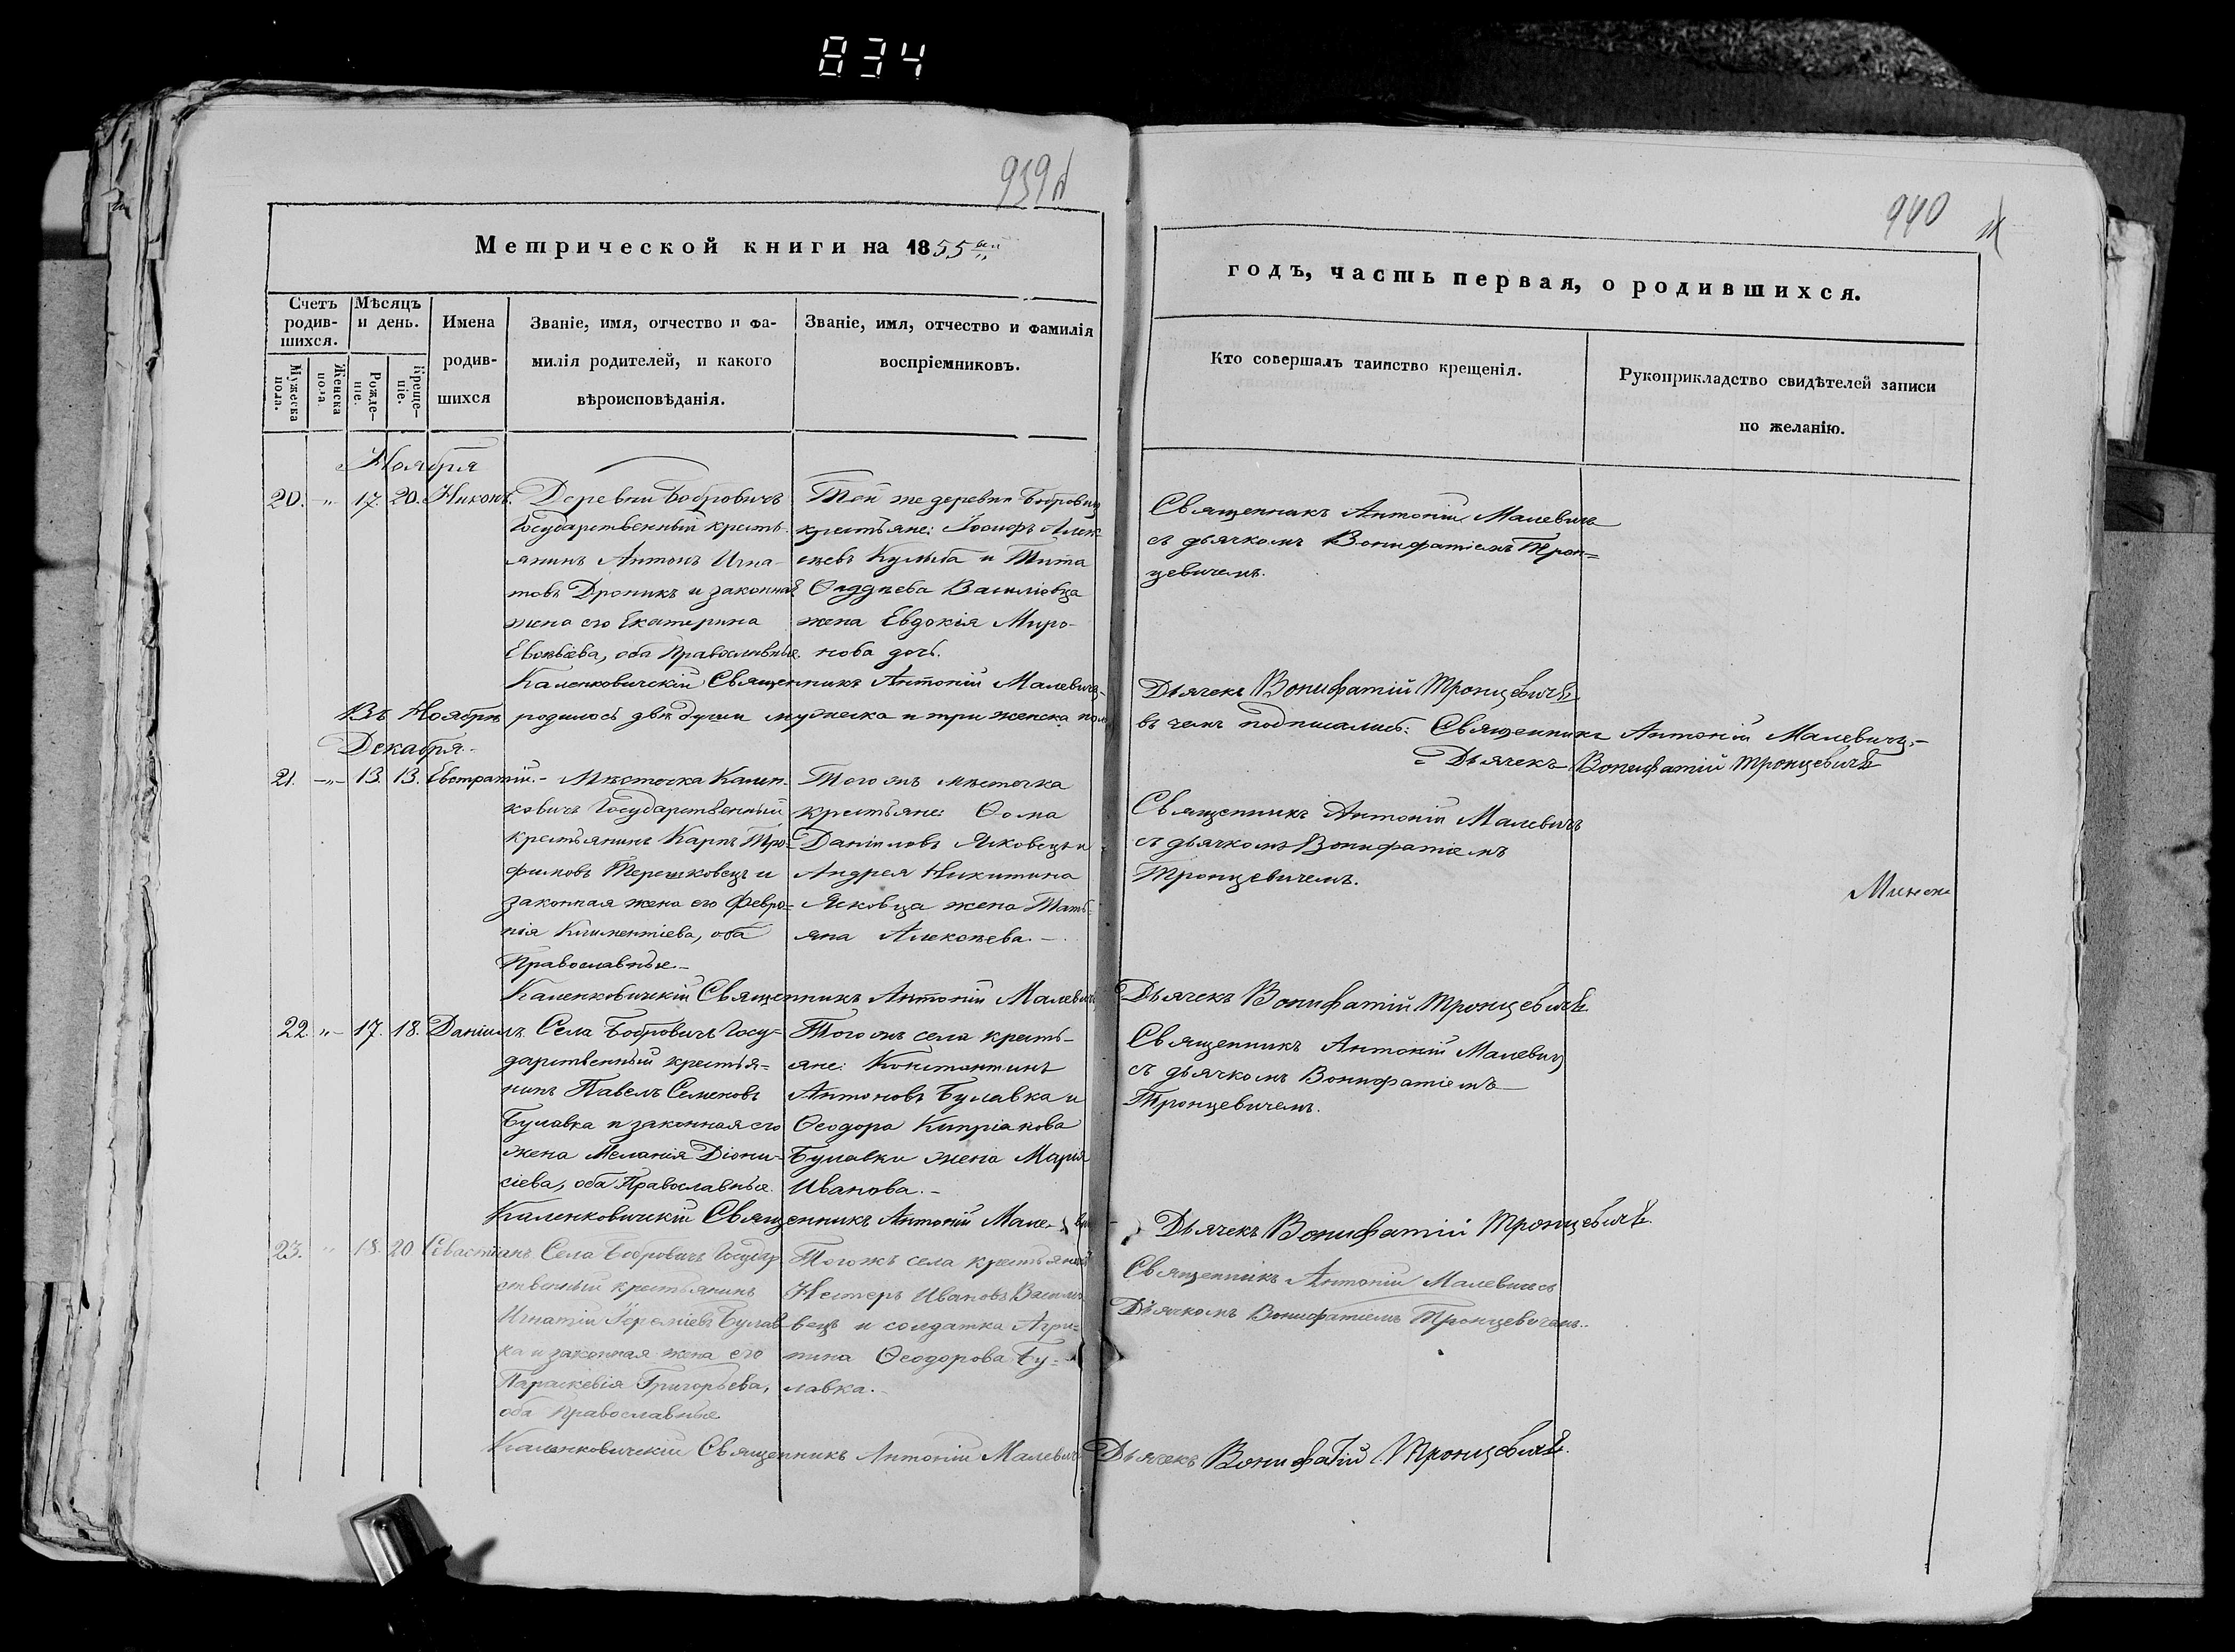 834
939
940
Метрической книги на 1855
годъ, часть первая, о родившихся.
Счетъ родив-шихся.
Мужеска пола.
Женска пола.
Мѣсяцъ и день.
Рожде-ніе.
Креще-ніе.
Имена
родив-
шихся
Званіе, имя, отчество и фа-
милія родителей, и какого
вѣроисповѣданія.
Званіе, имя, отчество и фамилія
воспріемниковъ.
Кто совершалъ таинство крещенія.
Рукоприкладство свидѣтелей записи
по желанію.
Ноября
20. -"- 17. 20. Никонъ.
Деревни Бобровичъ
Государственный кресть-
янинъ Антонъ Игна-
товъ Дроникъ и законная
жена его Екатерина
оба Православные.
Той же деревни Бобровичъ
крестьяне: Іосифъ Алек-
сѣевъ Кульба и Тита
Ѳаддѣева Василіовца
жена Евдокія Миро-
нова дочь.
Священникъ Антоній Малевичъ
съ дьячкомъ Вонифатіемъ Трон=
цевичемъ.
Каленковичскій Священникъ Антоній Малевичъ-
Дьячекъ Вонифатій Тронцевичъ
Въ Ноябрѣ родилось двѣ души мужеска и три женска пола
въ чемъ подписались: Священникъ Антоній Малевичъ.-
Дьячекъ Вонифатій Тронцевичъ
Декабря.
21. -"- 13. 13. Евстратій.-
Мѣсточка Кален-
ковичъ Государственный
крестьянинъ Карпъ Тро-
фимовъ Терешковецъ и
законная жена его Февро=
нія Климентіева, оба
Православные.-
Того жъ мѣсточка
крестьяне: Ѳома
Даніиловъ Яковецъ и
Андрея Никитина
Яковца жена Тать-
яна Алексѣева.-
Священникъ Антоній Малевичъ
съ дьячкомъ Вонифатіемъ
Тронцевичемъ.
Каленковичскій Священникъ Антоній Малевичъ
Дьячекъ Вонифатій Тронцевичъ
22. "- 17. 18. Даніилъ.
Села Бобровичъ Госу-
дарственный крестья=
нинъ Павелъ Семеновъ
Булавка и законная его
жена Меланія Діони-
сіева, оба Православные.
Того жъ села кресть-
яне: Константинъ
Антоновъ Булавка и
Ѳеодора Кипріанова
Булавки жена Марія
Иванова.-
Священникъ Антоній Малевичъ
съ дьячкомъ Вонифатіемъ
Тронцевичемъ.
Каленковичскій Священникъ Антоній Малевичъ
Дьячекъ Вонифатій Тронцевичъ.
23. " 18. 20 Севастіанъ
Села Бобровичъ Государ
ственный крестьянинъ
Игнатій Іереміевъ Булав
ка и законная жена его
Параскевія Григорьева,
оба Православные
Того жъ села крестьянинъ
Нестеръ Ивановъ Васили
вецъ и солдатка Агри=
пина Ѳеодорова Бу=
лавка.
Священникъ Антоній Малевичъ съ
Дьячкомъ Вонифатіемъ Тронцевичемъ.
Каленковичскій Священникъ Антоній Малевичъ
Дьячекъ Вонифатій Тронцевичъ.